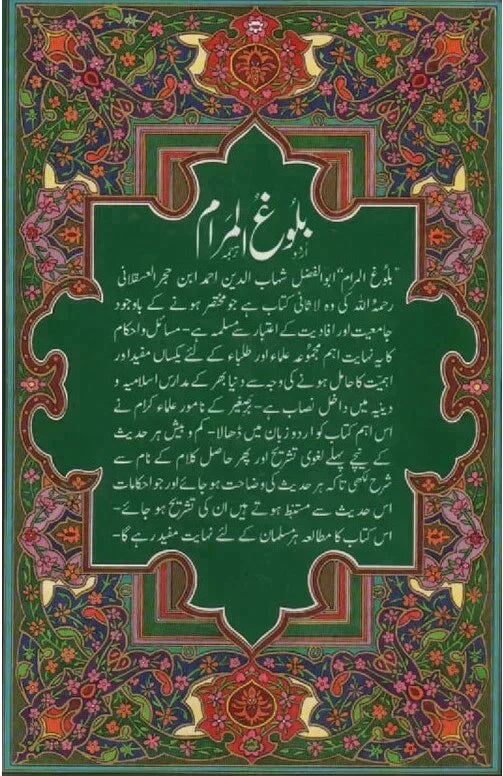 بلوغ المرام
اردو ترجمہ
"بلوغ المرام" ابوالفضل شہاب الدین احمد ابن حجر العسقلانی
رحمۃ اللہ کی وہ لاثانی کتاب ہے جو مختصر ہونے کے باوجود
جامعیت اور افادیت کے اعتبار سے مسلمہ ہے- مسائل و احکام
کا یہ نہایت اہم مجموعہ علماء اور طلباء کے لئے یکساں مفید اور
اہمیت کا حامل ہونے کی وجہ سے دنیا بھر کے مدارس اسلامیہ و
دینیہ میں داخل نصاب ہے- برصغیر کے نامور علماء کرام نے
اس اہم کتاب کو اردو زبان میں ڈھالا- کم و بیش ہر حدیث
کے نیچے پہلے لغوی تشریح اور پھر حاصل کلام کے نام سے
شرح لکھی تاکہ ہر حدیث کی وضاحت ہو جائے اور جو احکامات
اس حدیث سے مستنبط ہوتے ہیں ان کی تشریح ہو جائے-
اس کتاب کا مطالعہ ہر مسلمان کے لئے نہایت مفید رہے گا-